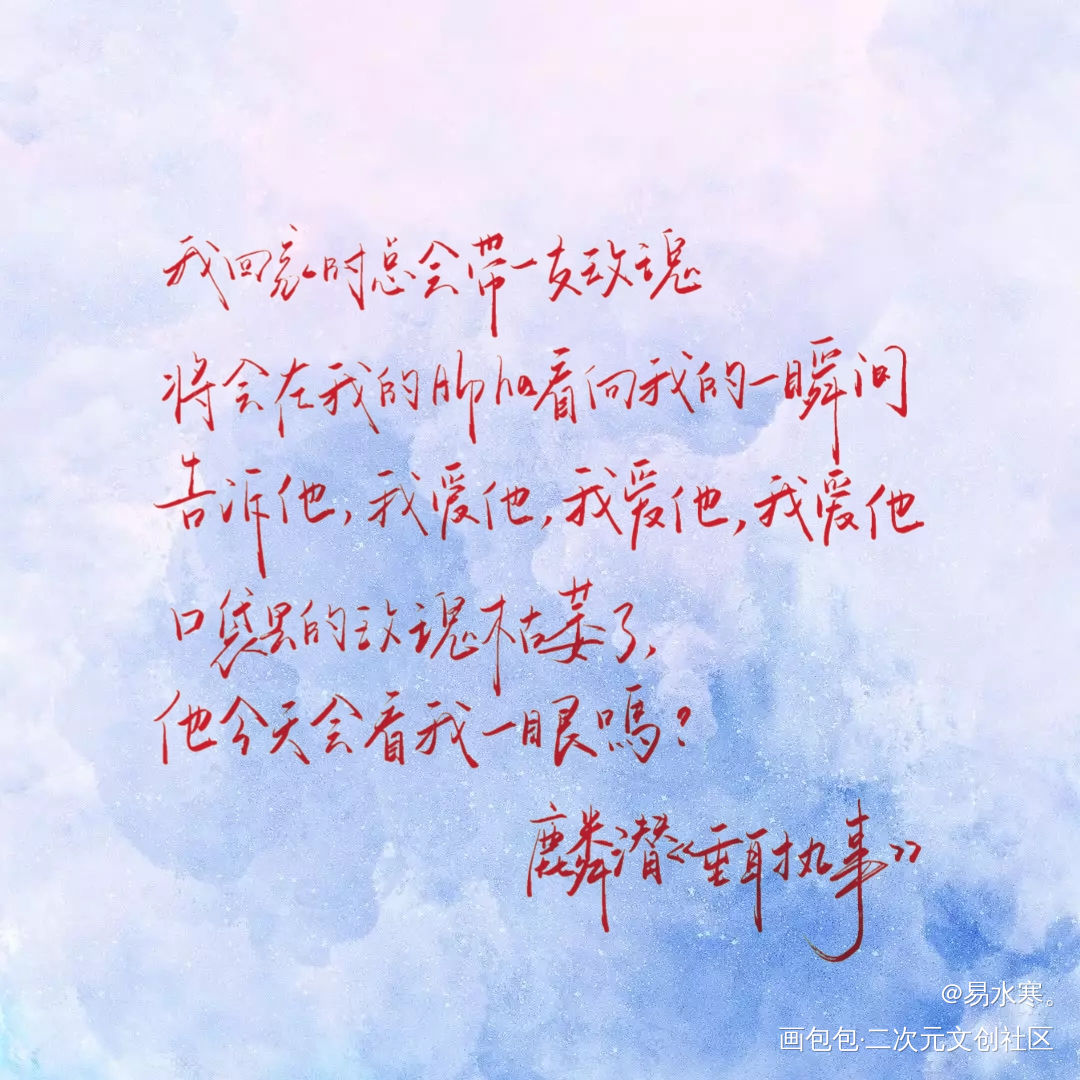 我回家时总会带一支玫瑰
将会在我的Alpha看向我的一瞬间
告诉他,我爱他,我爱他,我爱他
口袋里的玫瑰枯萎了,
他今天会看我一眼嗎?
麟潜《垂耳执事》
@易水寒。
画包包·二次元文创社区